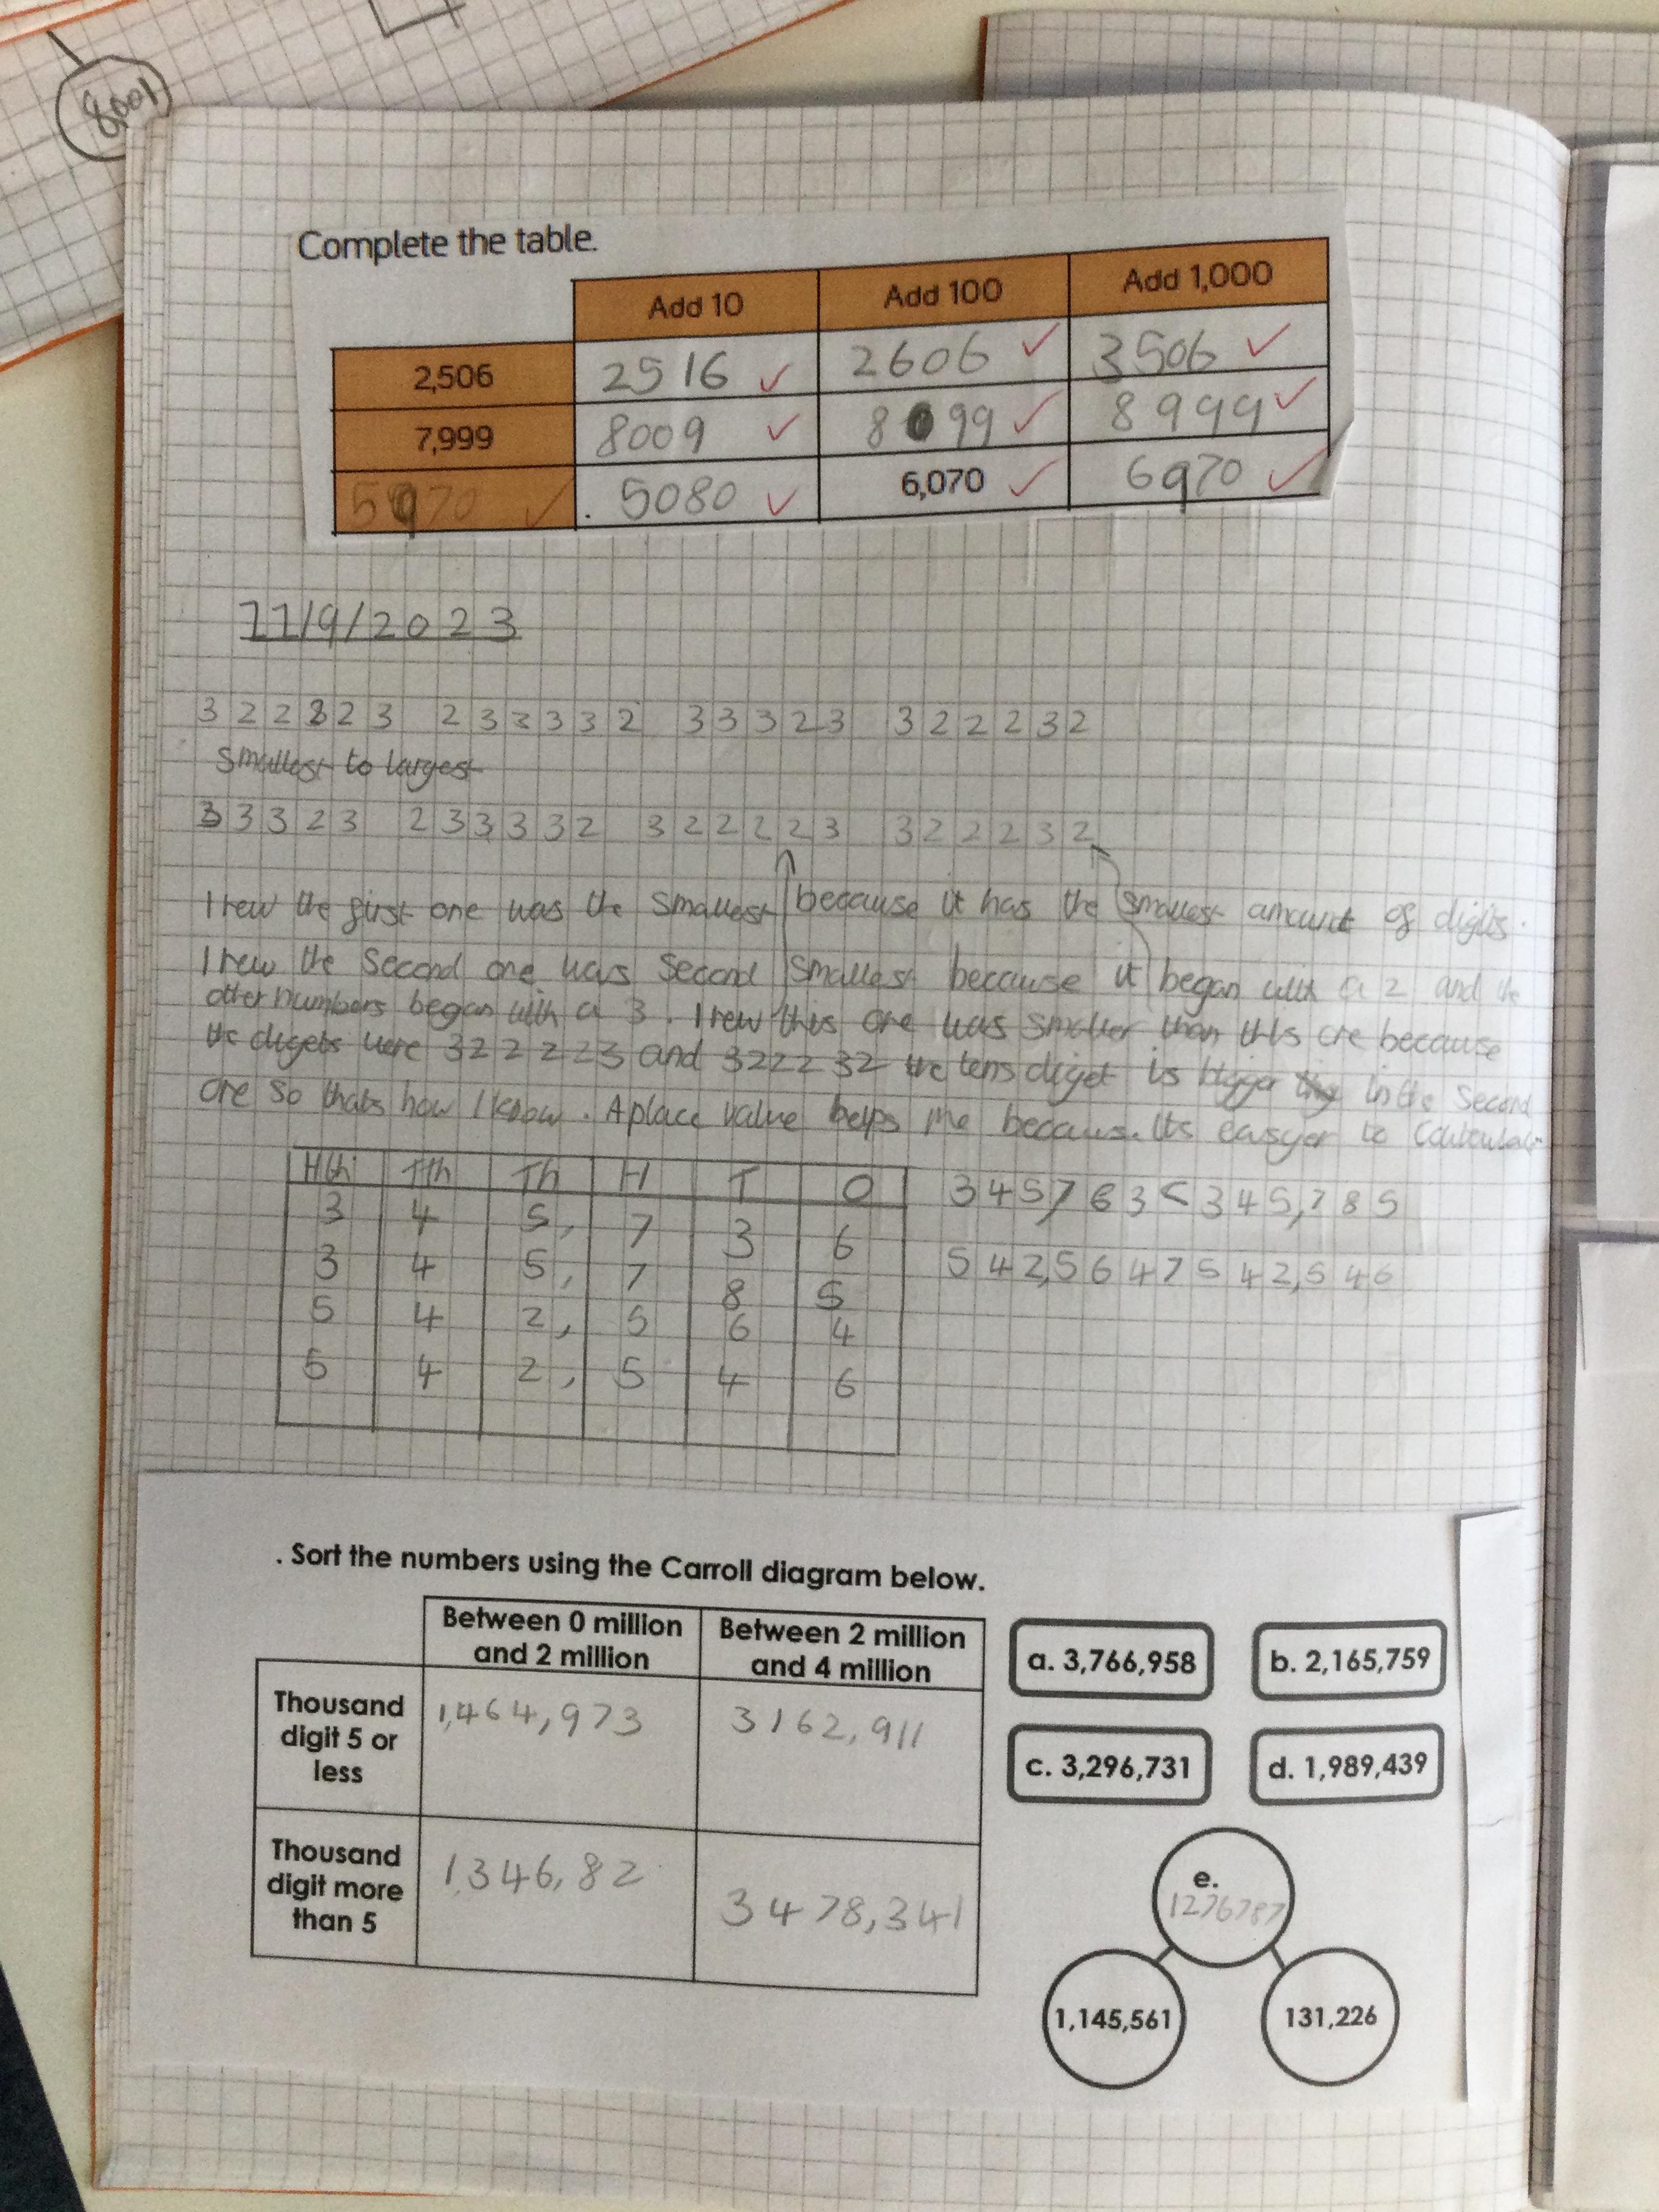 8,001
Complete the table.
Add 10 Add 100 Add 1,000
2,506 2516 2606 3506
7,999 8009 8099 8999
5970 5080 6,070 6970
11/9/2023
322223 233332 33323 322232
Smallest to largest
33323 233332 322223 322232
I new the first one was the smallest because it has the smallest amount of digits.
I new the second one was second smallest because it began with a 2 and the
other numbers began with a 3. I new this one was smaller than this one because
the digets were 322223 and 322232 the tens diget is bigger in the second
one so thats how I know. A place value helps me becaus. its easyer to
Hth Tth Th H T O
3 4 5, 7 3 6
3 4 5, 7 8 5
5 4 2, 5 6 4
5 4 2, 5 4 6
345,763 < 345,785
542,564 7 542,546
. Sort the numbers using the Carroll diagram below.
Between 0 million and 2 million
Between 2 million and 4 million
Thousand digit 5 or less
1,464,973 3162,911
Thousand digit more than 5
1,346,82 3478,341
a. 3,766,958 b. 2,165,759
c. 3,296,731 d. 1,989,439
e.
1276787
1,145,561 131,226